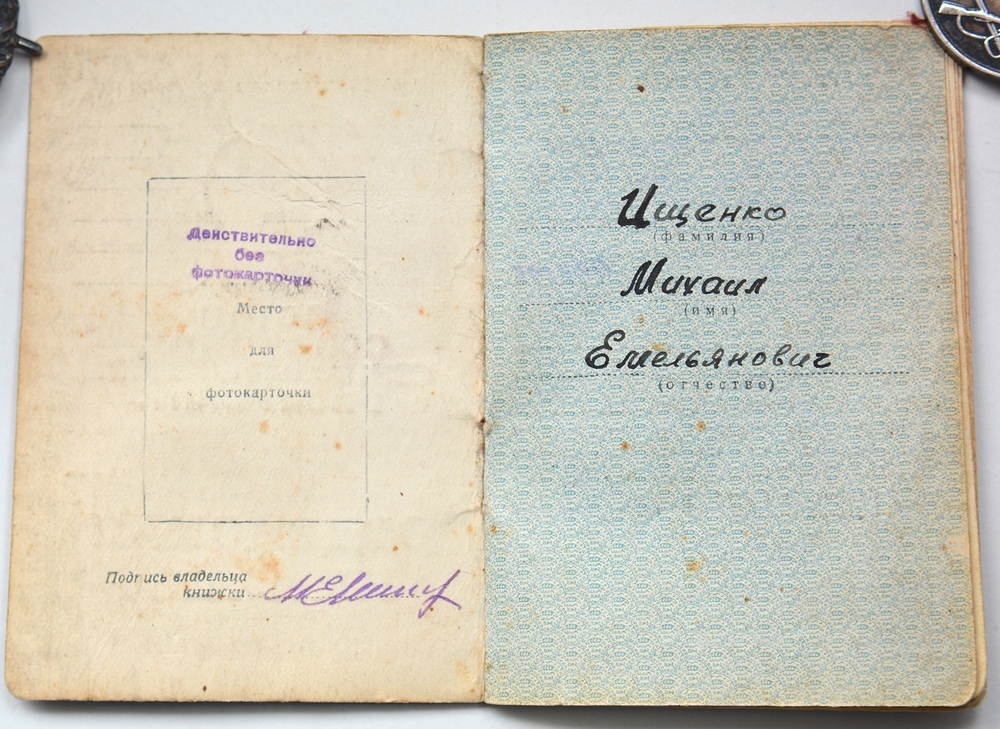 Действительно
без
фотокарточки
Место
для
фотокарточки
Подпись владельца
книжки
Ищенко
(фамилия)
Михаил
(имя)
Емельянович
(отчество)